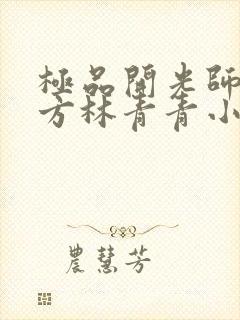 極品開光師
方林青青小
農慧芳